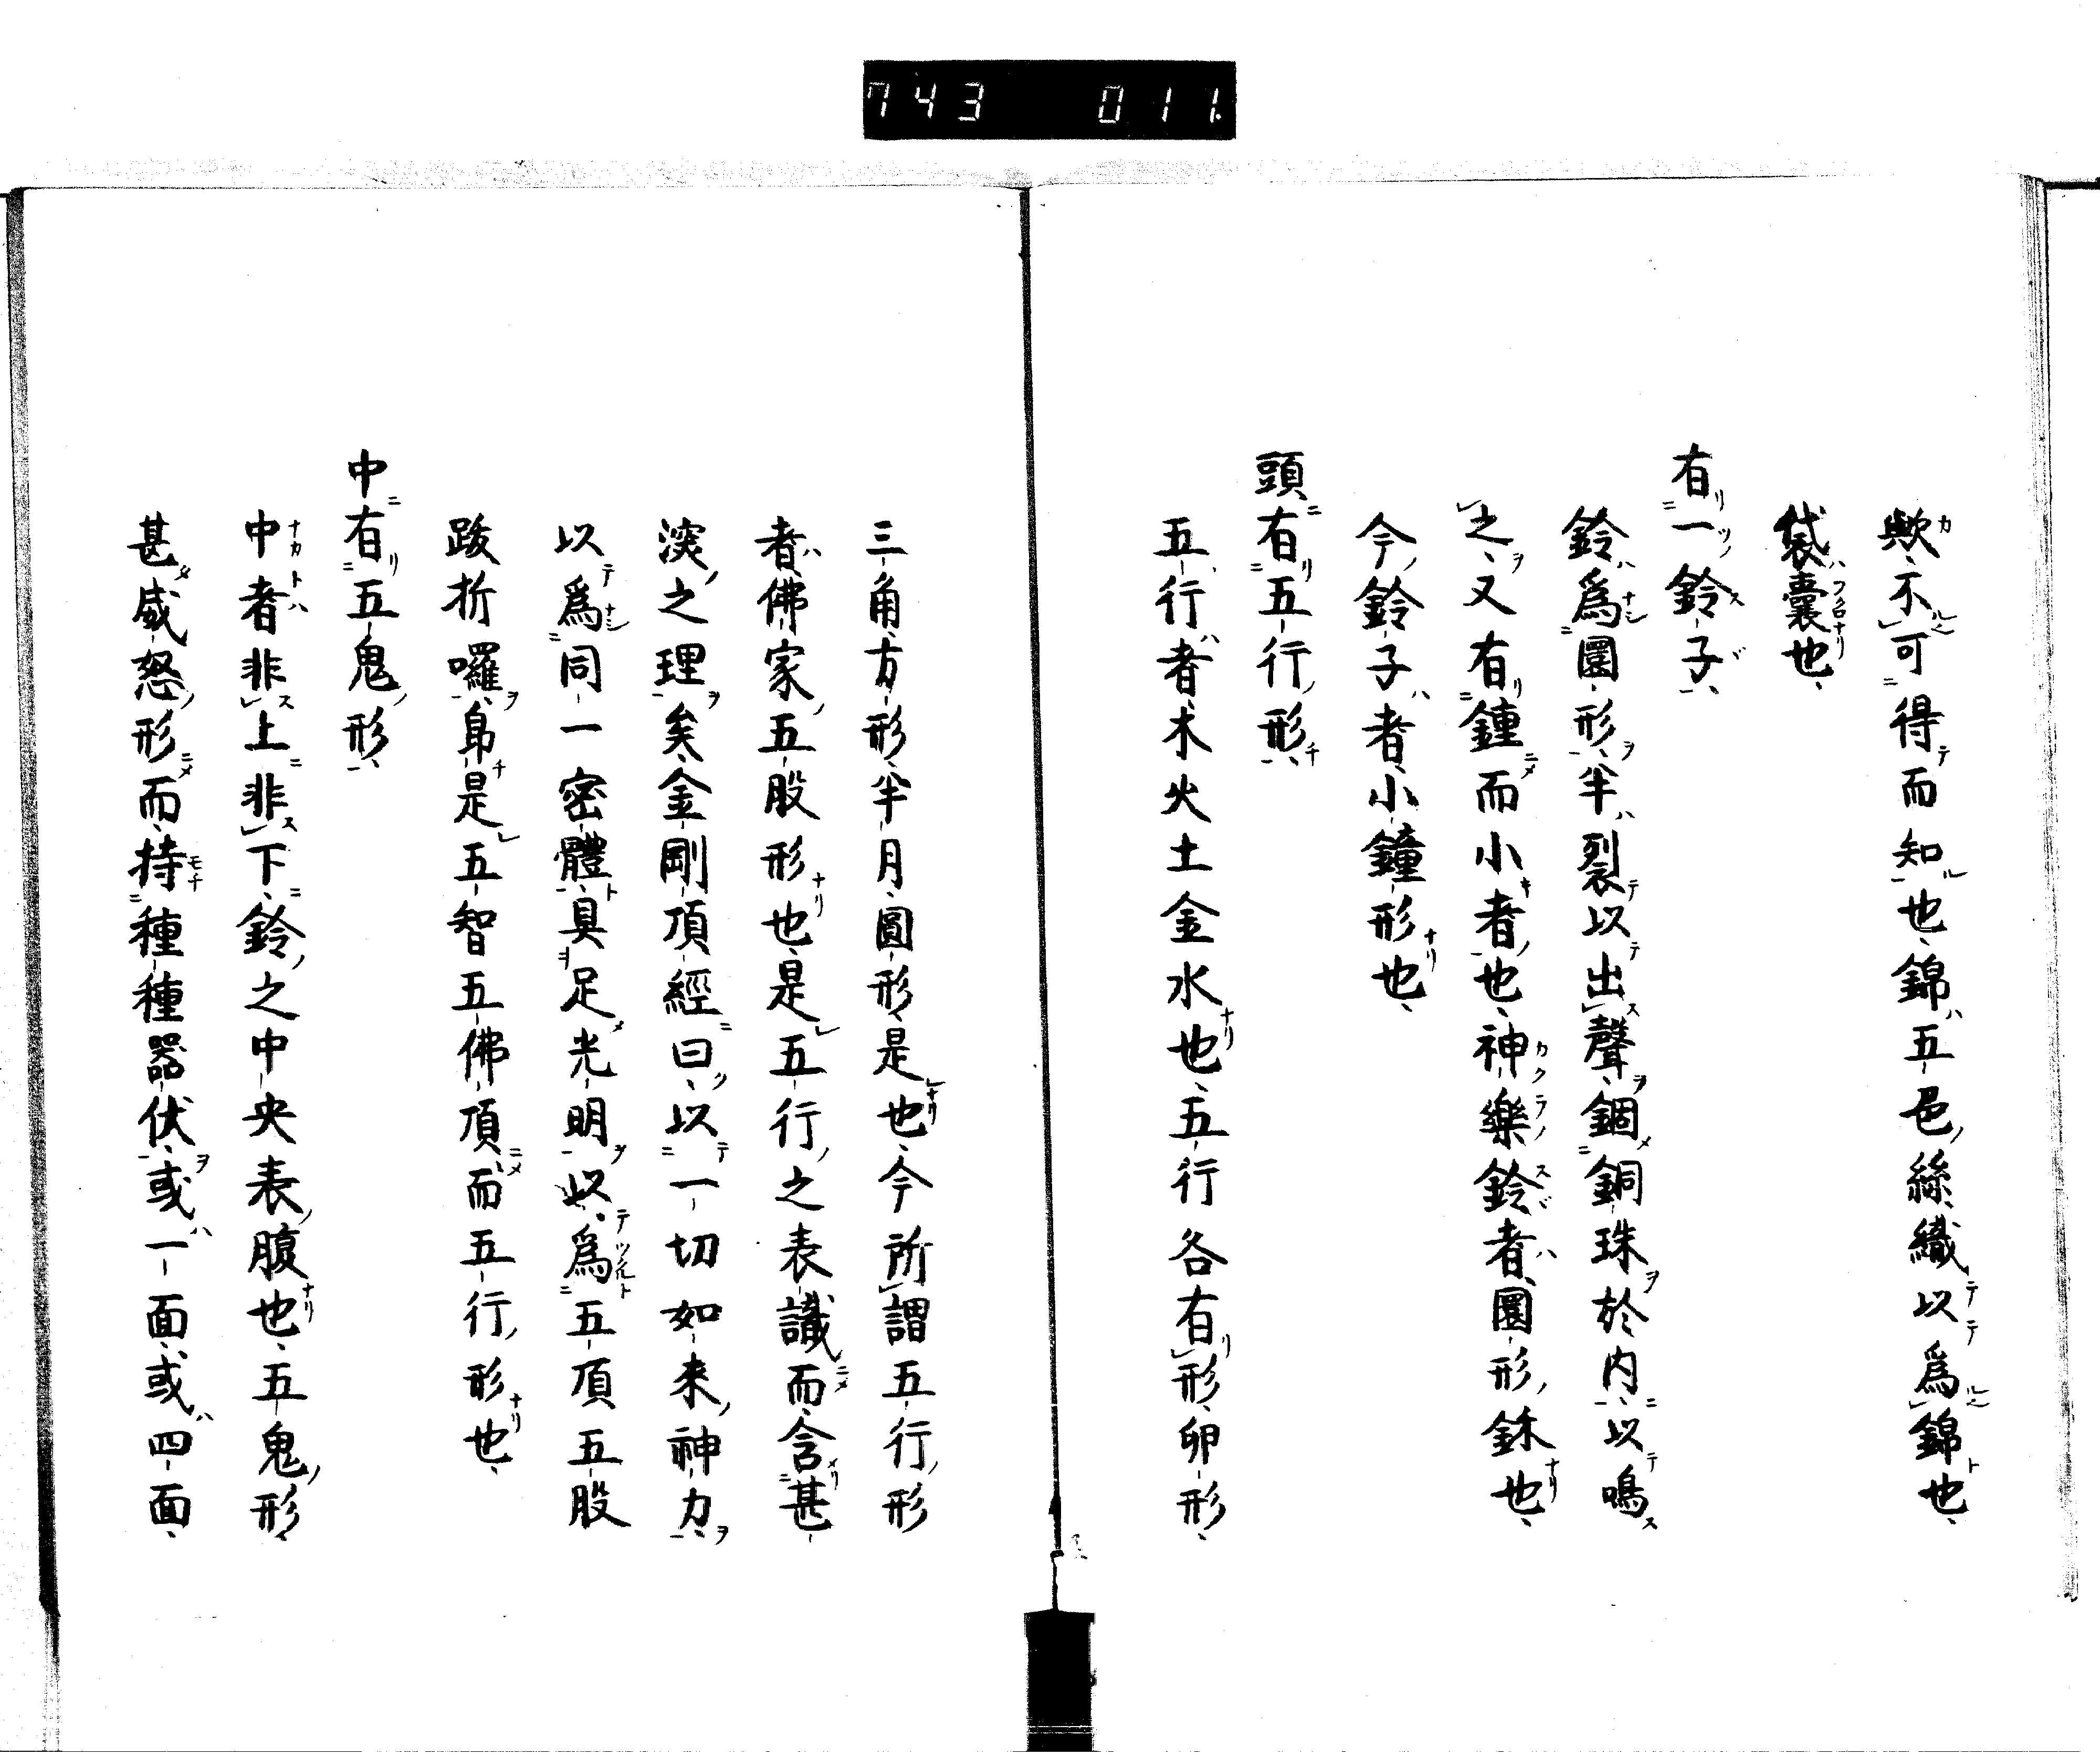 743 011.
歟、不可得而知也、錦五色絲織以爲錦也、
袋囊也、
有一鈴子、
鈴爲圜形、半裂以出聲、錮銅珠於内、以鳴
之、又有鍾而小者也、神樂鈴者、圜形鉌也、
今鈴子者、小鐘形也、
頭有五行形、
五行者、木火土金水也、五行各有形、卵形、
三角、方形、半月、圓形、是也、今所謂五行形
者、佛家五股形也、是五行之表識而含甚
深之理矣、金剛頂經曰、以一切如来神力、
以爲同一密體、具足光明、以爲五頂五股
跋折囉、即是五智五佛頂而五行形也、
中有五鬼形、
中者非上非下、鈴之中央表腹也、五鬼形、
甚威怒形而持種種器伏、或一面、或四面、